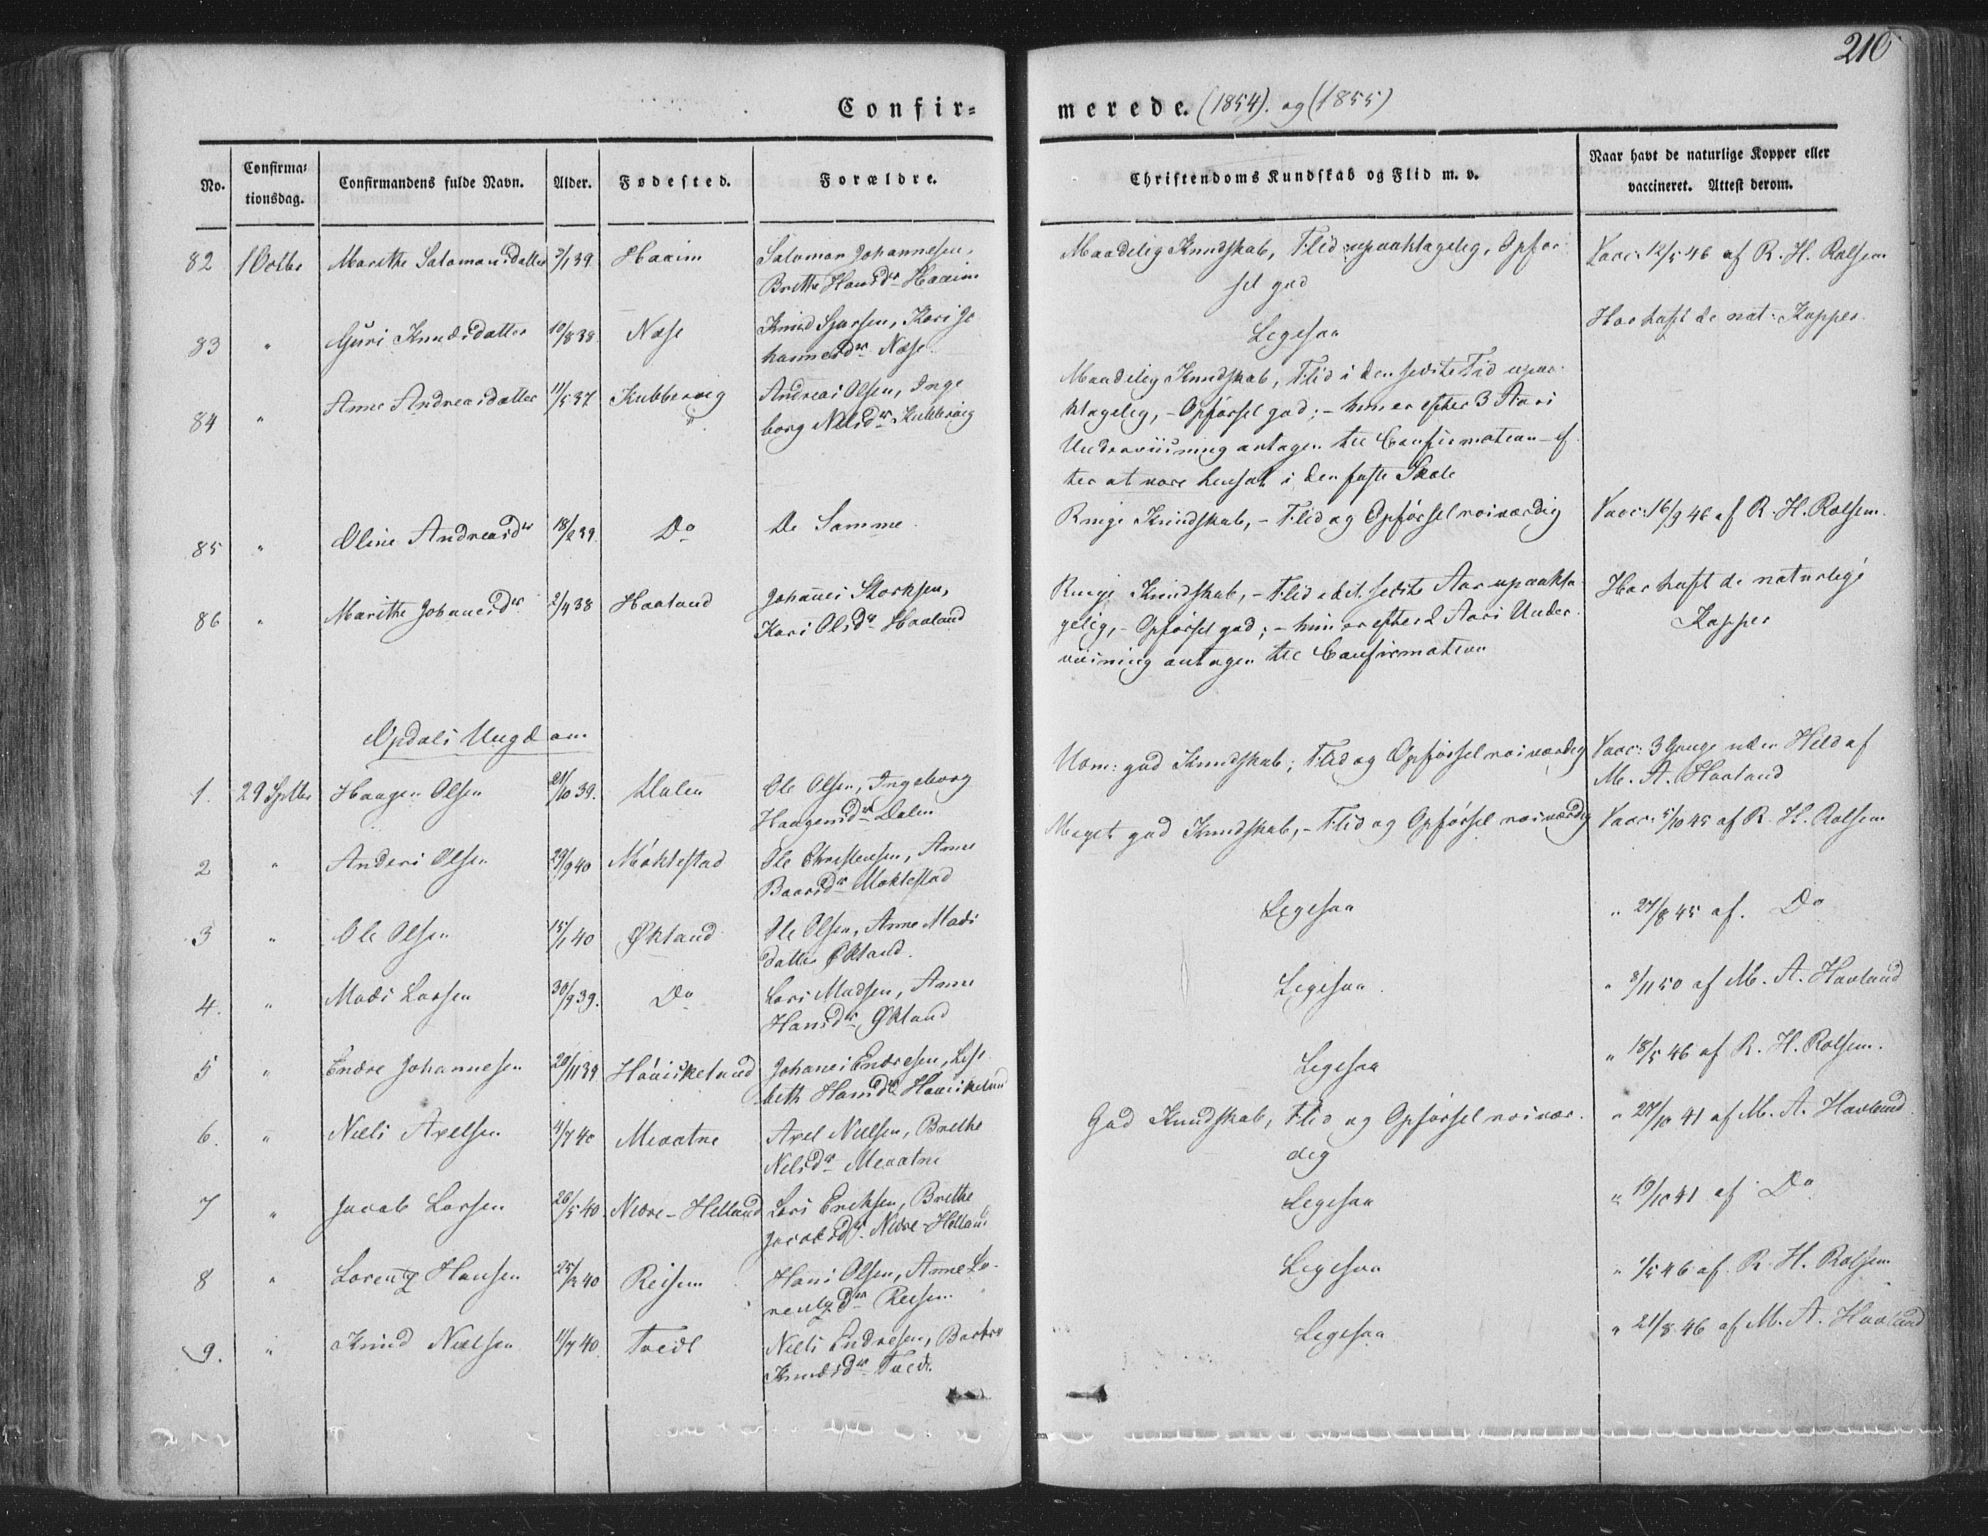 210
Confir-
merede. (1854). og (1855)
No.
Confirma-
tionsdag.
Confirmandens fulde Navn.
Alder.
Fødested.
Forældre.
Christendoms Kundskab og Flid m. v.
Naar havt de naturlige Kopper eller
vaccineret. Attest derom.
82 1 Octbr Marithe Salomonsdatter 3/1 39 Haaim Salomon Johannesen,
Brithe Hansdr Haaim
Maadelig Kundskab, Flid upaaklagelig, Opfør-
sel god
Vacc: 12/5 46 af R. H. Rolfsen
83 " Guri Knudsdatter 10/8 38 Næse Knud Sjursen, Kari Jo
hannesdr Næse.
Ligesaa
Har haft de nat: Kopper.
84 " Anne Andreasdatter 11/5 37 Kubbervig Andreas Olsen, Inge
borg Nilsdr Kubbevig
Maadelig Kundskab, Flid i den sidste Tid upaa-
klagelig, - Opførsel god; - hun er efter 3 Aars
Underviisning antagen til Confirmation - ef
ter at være hensat i den faste Skole
85 " Oline Andreasdr 18/2 39. Do De Samme.
Ringe Kundskab, - Flid og Opførsel roisværdig
Vacc: 16/9 46 af R. H. Rolfsen.
86 " Marithe Johannesdr 2/4 38 Haaland Johannes Storksen,
Kari Olsdr Haaland
Ringe Kundskab, - Flid i det sidste Aar upaakla
gelig, - Opførsel god; - hun er efter 2 Aars Under
viisning antagen til Confirmation
Har haft de naturlige
Kopper
Opdals Ungdom
1. 29 Septbr Haagen Olsen 21/10 39. Dalen Ole Olsen, Ingeborg
Haagensdr Dalen
Ugm: god Kundskab; Flid og Opførsel roisværdig
Vacc: 3 Gange uden Held af
M. A. Havland
2 " Anders Olsen 29/9 40 Møklestad Ole Christensen, Anne
Baarsdr Møklestad
Meget god Kundskab, - Flid og Opførsel roisværdig
Vacc: 5/10 45 af R. H. Rolfsen
3 " Ole Olsen 15/1 40 Økland Ole Olsen, Anne Mads
datter Økland.
Ligesaa
" 27/8 45 af. Do
4. " Mads Larsen 30/9 39. Do Lars Madsen, Anne
Hansdr Økland
Ligesaa.
" 8/11 50 af M. A. Havland
5 " Endre Johannesen 20/11 39 Haaiskeland Johanes Endresen, Lis
beth Hansdr Haaiskeland
Ligesaa
" 18/5 46 af R. H. Rolfsen.
6. " Niels Axelsen 11/7 40 Mevatne Axel Nielsen, Brithe
Nilsdr Mevatne
God Kundskab, Flid og Opførsel roisvær-
dig
" 27/10 41 af M. A. Havland
7 " Jacob Larsen 26/5 40. Nedre-Helland Lars Eriksen, Brithe
Jacobsdr. Nedre-Helland
Ligesaa
" 19/10 41 af Do
8 " Lorentz Hansen 25/2 40 Reisen Hans Olsen, Anne Lo-
rentzdr Reisen
Ligesaa
" 1/5 46 af. R. H. Rolfsen
9. " Knud Nielsen 11/7 40. Tvedt Niels Endresen, Barbro
Knudsdr Tvedt.
Ligesaa
" 21/8 46 af M. A. Havland